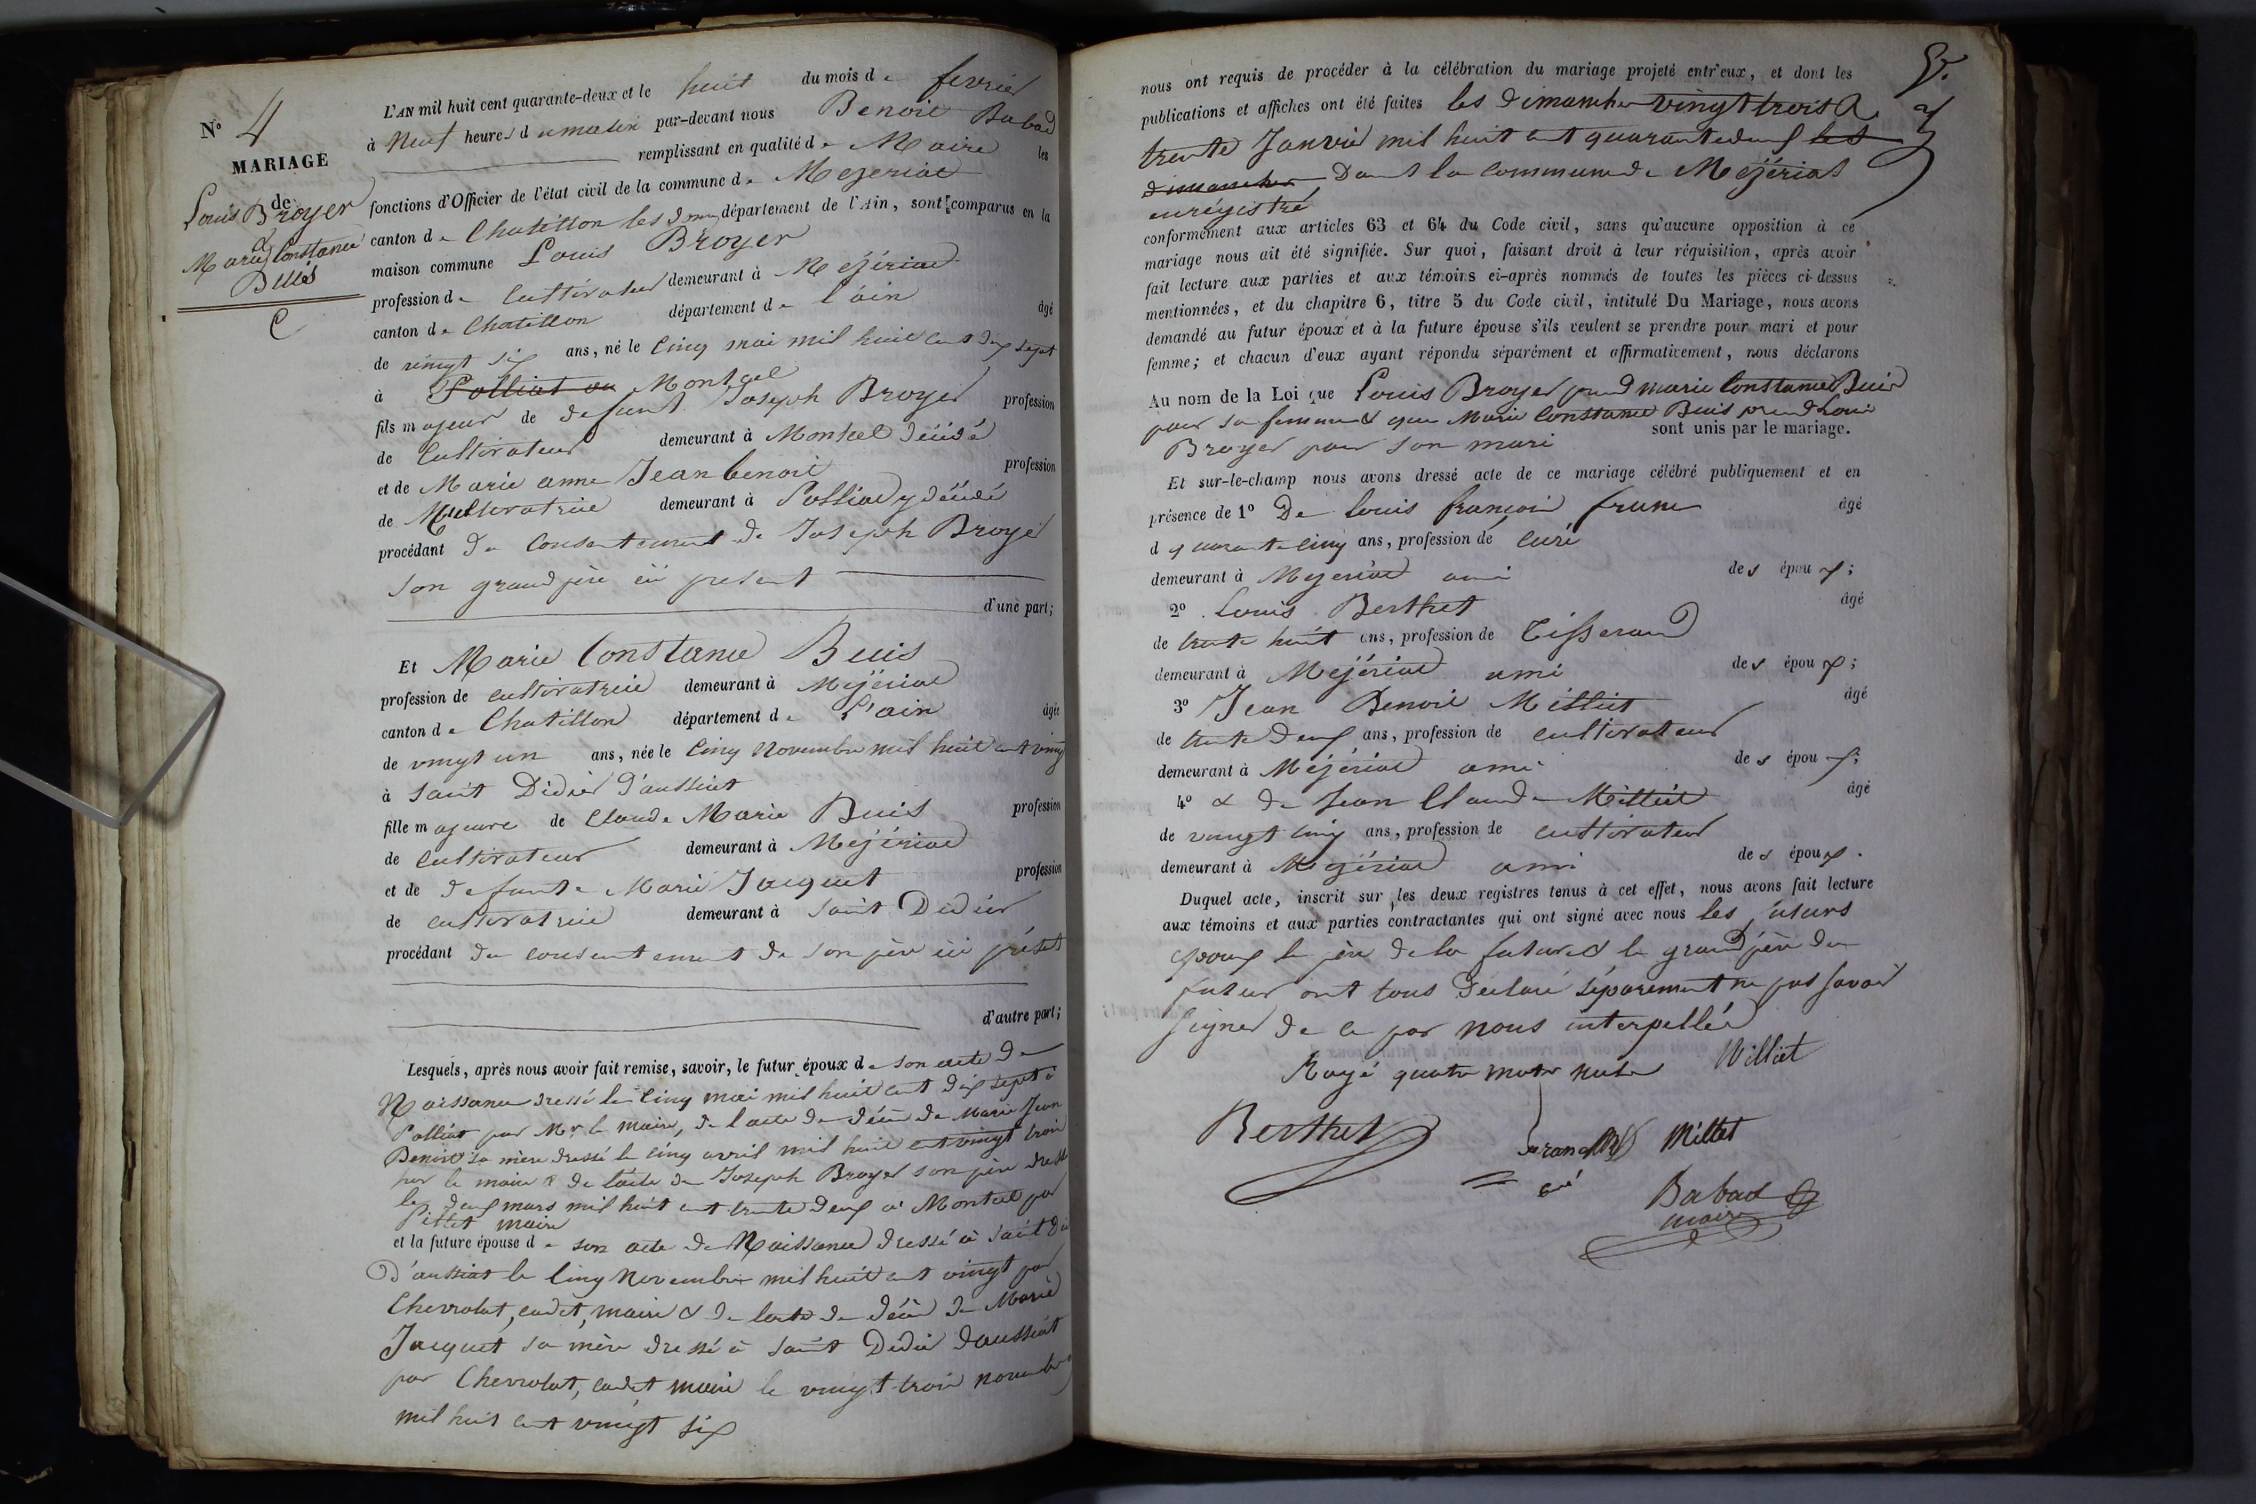 N° 4
MARIAGE
de
Louis Broyer
&
Marie Constance
Buis
C
L'AN mil huit cent quarante-deux et le huit du mois de fevrier
à neuf heures du matin par-devant nous Benoit Babad
remplissant en qualité de Maire les
fonctions d'Officier de l'état civil de la commune de Mejeriat
canton de Chatillon les dom département de l'Ain, sont comparus en la
maison commune Louis Broyer
profession de Cultivateur demeurant à Mejériat
canton de Chatillon département de l'ain âgé
de vingt six ans, né le cinq mai mil huit cent dix sept
à Polliat ou Montcel
fils majeur de defunt Joseph Broyer profession
de Cultivateur demeurant à Montcel décédé
et de Marie anne Jean benoit profession
de Cultivatrice demeurant à Polliat y décédé
procédant du Consentement de Joseph Broyer
son grand père ici present
d'une part;
Et Marie Constance Buis
profession de cultivatrice demeurant à Mejériat
canton de Chatillon département de L'ain âgée
de vingt un ans, née le cinq Novembre mil huit cent vingt
à Saint Didier d'aussiat
fille majeure de Claude Marie Buis profession
de Cultivateur demeurant à Mejériat
et de defunte Marie Jacquet profession
de cultivatrice demeurant à Saint Didier
procédant du consentement de son père ici présent
d'autre part;
Lesquels, après nous avoir fait remise, savoir, le futur époux de son acte de
Naissance dressé le cinq mai mil huit cent dix sept à
Polliat par Mr le maire, de l'acte de décè de Marie Jean
Benoit sa mère dressé le cinq avril mil huit cent vingt trois
par le maire & de l'acte de Joseph Broyer son père dressé
le deux mars mil huit cent trente deux à Montcel par
Pittet maire
et la future épouse de son acte de Naissance dressé à Saint Di
D'aussiat le cinq Novembre mil huit cent vingt par
Chevrolat, cadet, maire & de lacte de décè de Marie
Jacquet sa mère dressé à Saint Didier daussiat
par Chevrolat, cadet maire le vingt trois novembre
mil huit cent vingt six
5.
nous ont requis de procéder à la célébration du mariage projeté entr'eux, et dont les
publications et affiches ont été faites les dimanches vingt trois &
trente Janvier mil huit cent quarante deux les
dimanches Dans la commune de Mejériat
enrégistré
conformément aux articles 63 et 64 du Code civil, sans qu'aucune opposition à ce
mariage nous ait été signifiée. Sur quoi, faisant droit à leur réquisition, après avoir
fait lecture aux parties et aux témoins ci-après nommés de toutes les pièces ci-dessus
mentionnées, et du chapitre 6, titre 5 du Code civil, intitulé Du Mariage, nous avons
demandé au futur époux et à la future épouse s'ils veulent se prendre pour mari et pour
femme; et chacun d'eux ayant répondu séparément et affirmativement, nous déclarons
Au nom de la Loi que Louis Broyer prend marie Constance Buis
pour sa femme & que Marie Constance Buis prend Louis
sont unis par le mariage.
Broyer pour son mari
Et sur-le-champ nous avons dressé acte de ce mariage célébré publiquement et en
présence de 1° De Louis françois âgé
d quarante cinq ans, profession de curé
demeurant à Mejeriat ami des époux;
2° Louis Berthet âgé
de trente huit ans, profession de Tisserand
demeurant à Mejériat ami des époux;
3° Jean Benoit Milliet âgé
de trente deux ans, profession de cultivateur
demeurant à Mejériat ami des époux;
4° & de Jean Claude Milliet âgé
de vingt cinq ans, profession de cultivateur
demeurant à Mejériat ami des époux.
Duquel acte, inscrit sur les deux registres tenus à cet effet, nous avons fait lecture
aux témoins et aux parties contractantes qui ont signé avec nous les futurs
epoux le père de la future & le grand père du
futur ont tous déclaré séparement ne pas savoir
signer de ce par nous interpellés
Rayé quatre mots nuls Milliet
Berthet
curé
Millet
Babad
maire